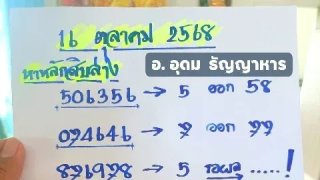 16 ตุลาคม 2568
หาหลักสิบล่าง
อ. อุดม ธัญญาหาร
506356 → 5 ออก 58
094646 → 7 ออก 77
876978 → 5 รอผล .....!